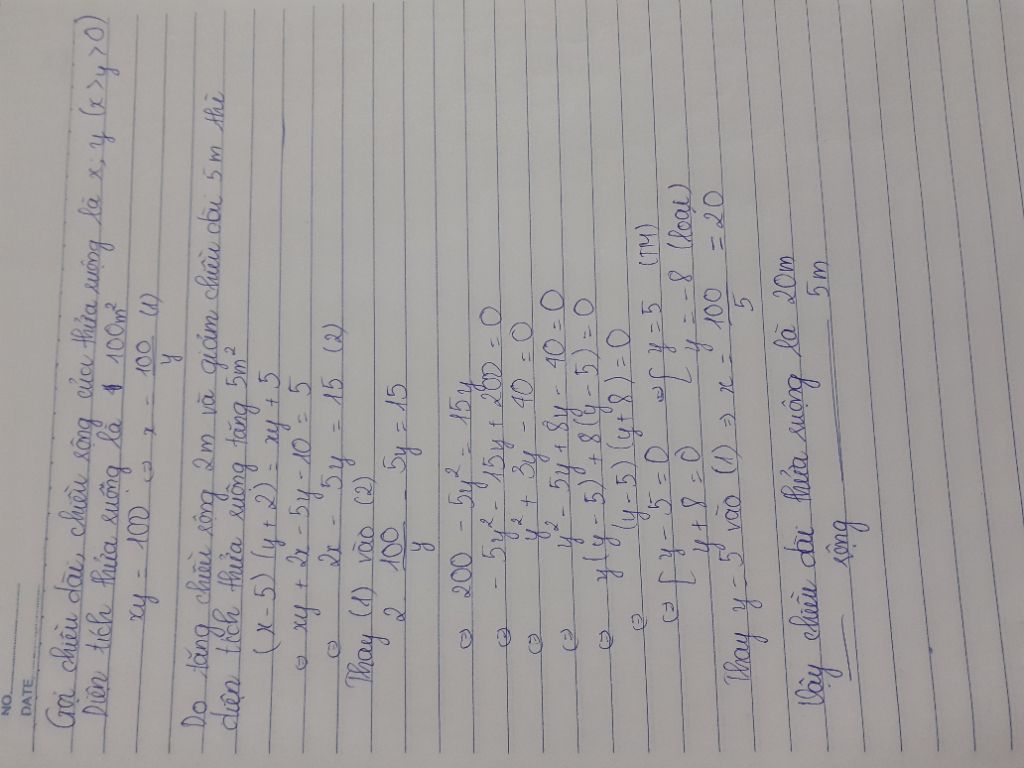 NO
DATE
Gọi chiều dài, chiều rộng của thửa ruộng là x; y (x > y > 0)
Diện tích thửa ruộng là 100m²
xy = 100 ⇔ x = 100/y (1)
Do tăng chiều rộng 2m và giảm chiều dài 5m thì
diện tích thửa ruộng tăng 5m²
(x-5)(y+2) = xy + 5
⇔ xy + 2x - 5y - 10 = 5
⇔ 2x - 5y = 15 (2)
Thay (1) vào (2)
2 100/y - 5y = 15
⇔ 200 - 5y² = 15y
⇔ - 5y² - 15y + 200 = 0
⇔ y² + 3y - 40 = 0
⇔ y² - 5y + 8y - 40 = 0
⇔ y(y-5) + 8(y-5) = 0
⇔ (y-5)(y+8) = 0
⇔ [ y - 5 = 0 ⇔ [ y = 5 (TM)
y + 8 = 0 y = -8 (loại)
Thay y = 5 vào (1) ⇒ x = 100/5 = 20
Vậy chiều dài thửa ruộng là 20m
rộng 5m